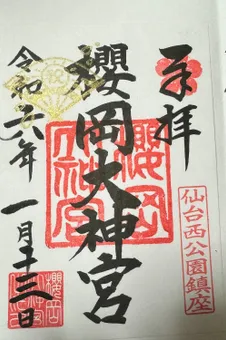 奉拝
櫻岡大神宮
櫻岡大神宮
仙台西公園鎮座
令和六年一月十三日